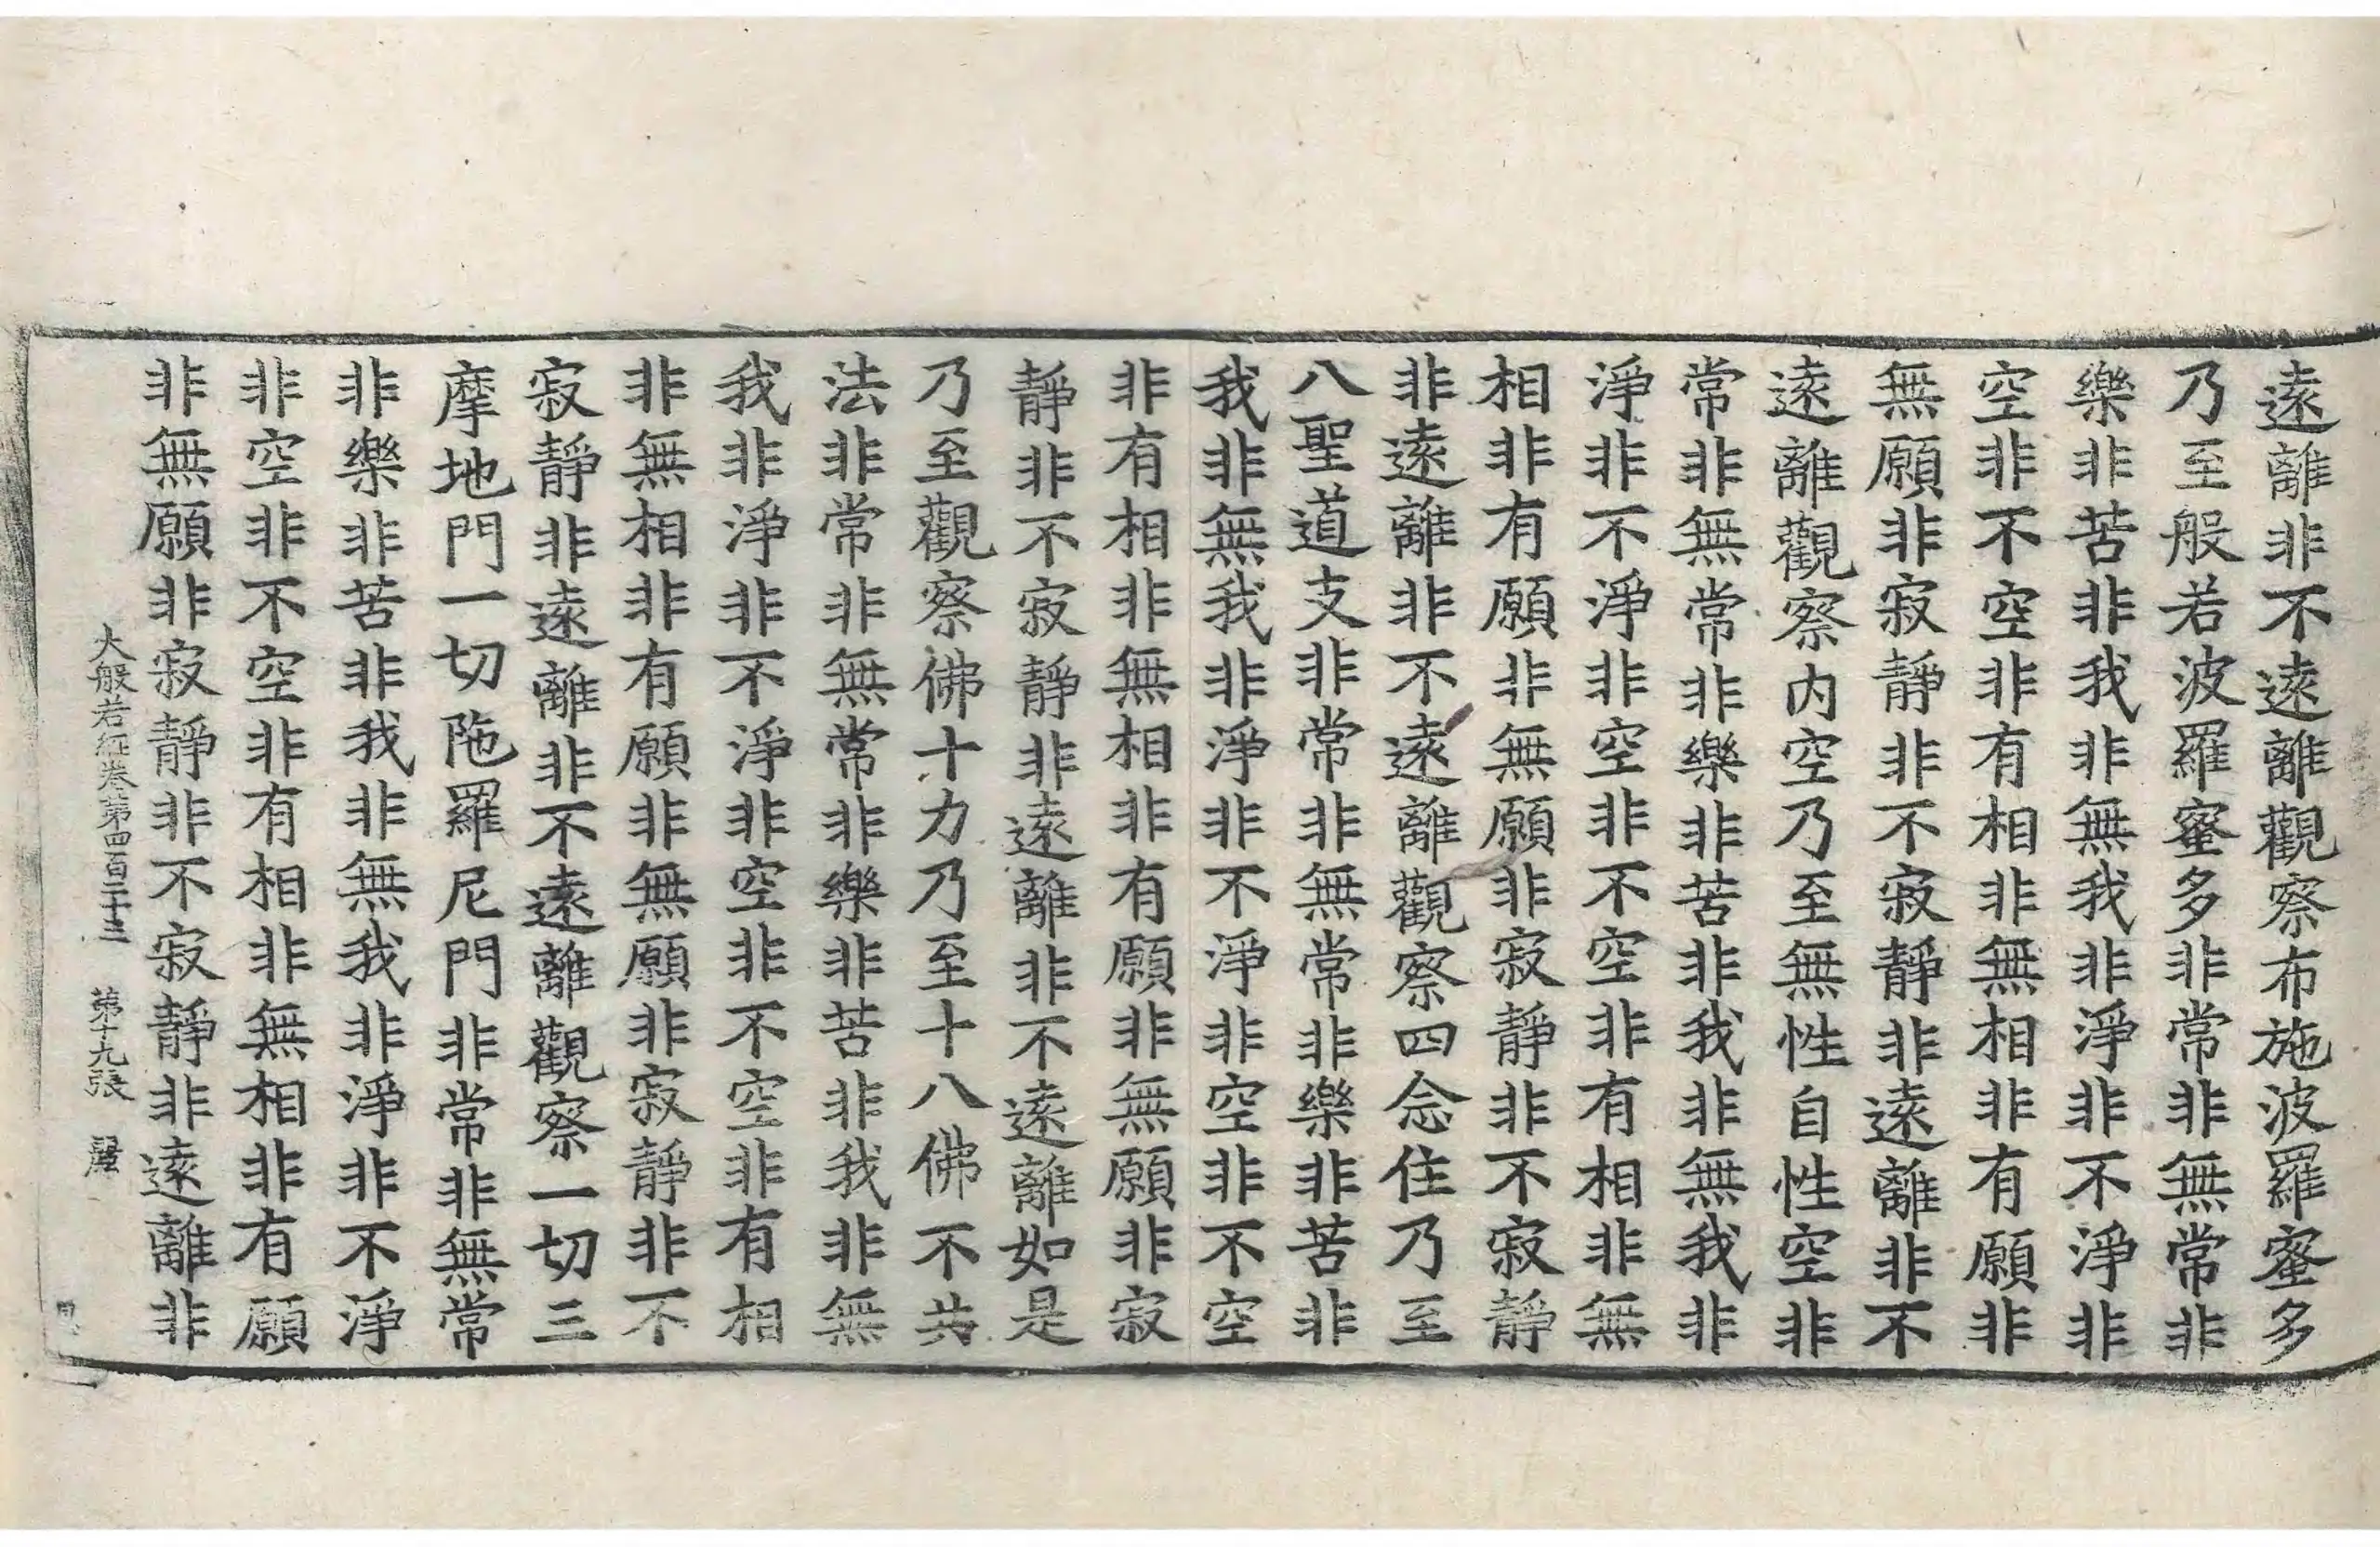 遠離非不遠離觀察布施波羅蜜多
乃至般若波羅蜜多非常非無常非
樂非苦非我非無我非淨非不淨非
空非不空非有相非無相非有願非
無願非寂靜非不寂靜非遠離非不
遠離觀察内空乃至無性自性空非
常非無常非樂非苦非我非無我非
淨非不淨非空非不空非有相非無
相非有願非無願非寂靜非不寂靜
非遠離非不遠離觀察四念住乃至
八聖道支非常非無常非樂非苦非
我非無我非淨非不淨非空非不空
非有相非無相非有願非無願非寂
靜非不寂靜非遠離非不遠離如是
乃至觀察佛十力乃至十八佛不共
法非常非無常非樂非苦非我非無
我非淨非不淨非空非不空非有相
非無相非有願非無願非寂靜非不
寂靜非遠離非不遠離觀察一切三
摩地門一切陁羅尼門非常非無常
非樂非苦非我非無我非淨非不淨
非空非不空非有相非無相非有願
非無願非寂靜非不寂靜非遠離非
大般若經卷第四百二十三 第十九張 麗